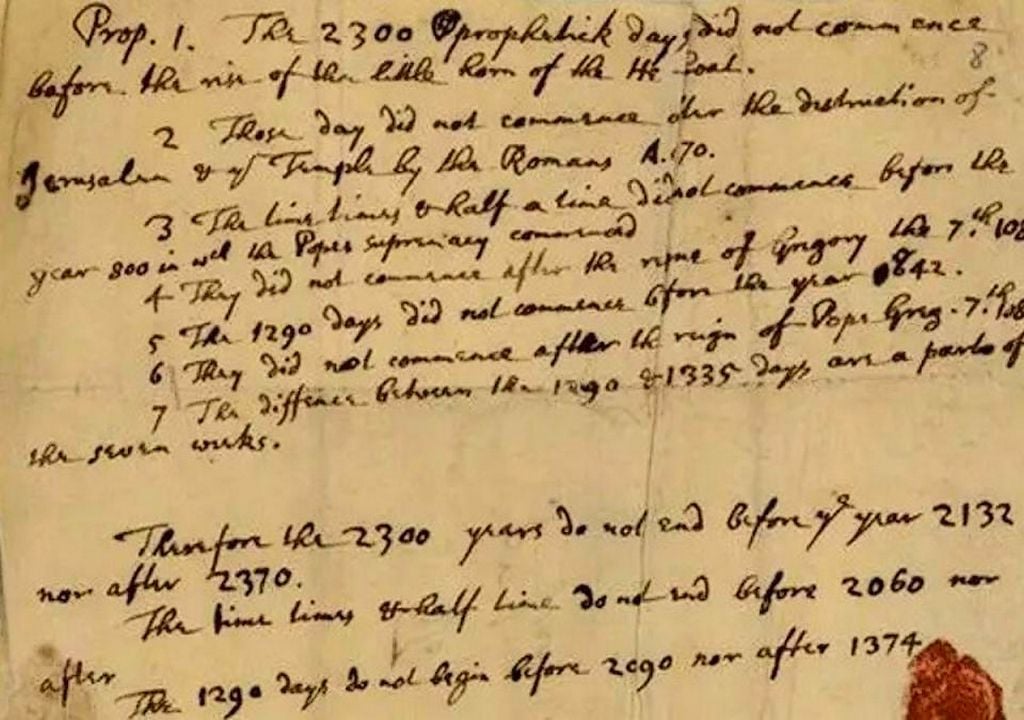 Prop. 1. The 2300 prophetick days did not commence
before the rise of the little horn of the He Goat.
2 Those day did not commence after the destruction of
Jerusalem & ye Temple by the Romans A. 70.
3 The time times & half a time did not commence before the
year 800 in wch the Popes supremacy commenced
4 They did not commence after the reigne of Gregory the 7.th 108
5 The 1290 days did not commence before the year 842.
6 They did not commence after the reign of Pope Greg. 7.th 108
7 The diffence between the 1290 & 1335 days are a parts of
the seven weeks.
Therefore the 2300 years do not end before ye year 2132
nor after 2370.
The time times & half time do not end before 2060 nor
after
The 1290 days do not begin before 2090 nor after 1374
8